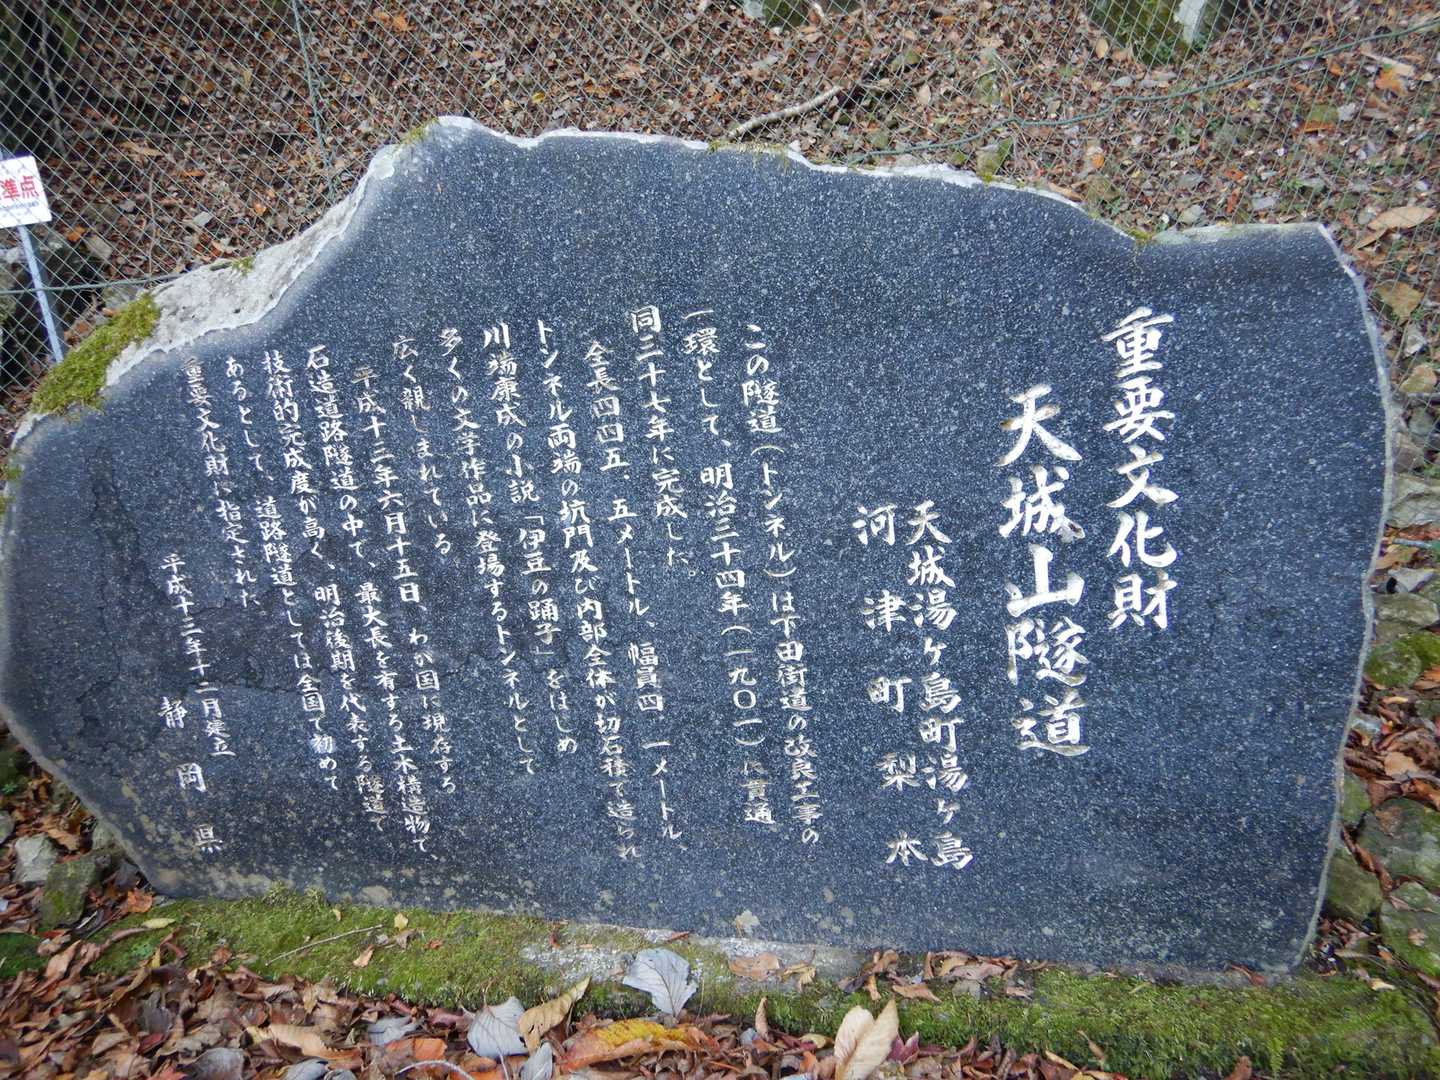 重要文化財
天城山隧道
天城湯ヶ島町湯ヶ島
河津町梨本
この隧道（トンネル）は下田街道の改良工事の
一環として、明治三十四年（一九〇一）に貫通
同三十七年に完成した。
全長四四五．五メートル、幅員四．一メートル、
トンネル両端の坑門及び内部全体が切石積で造られ
川端康成の小説「伊豆の踊子」をはじめ
多くの文学作品に登場するトンネルとして
広く親しまれている。
平成十三年六月十五日、わが国に現存する
石造道路隧道の中で、最大長を有する土木構造物で、
技術的完成度が高く、明治後期を代表する隧道で
あるとして、道路隧道としては全国で初めて
重要文化財に指定された
平成十三年十二月建立
静岡県
準点